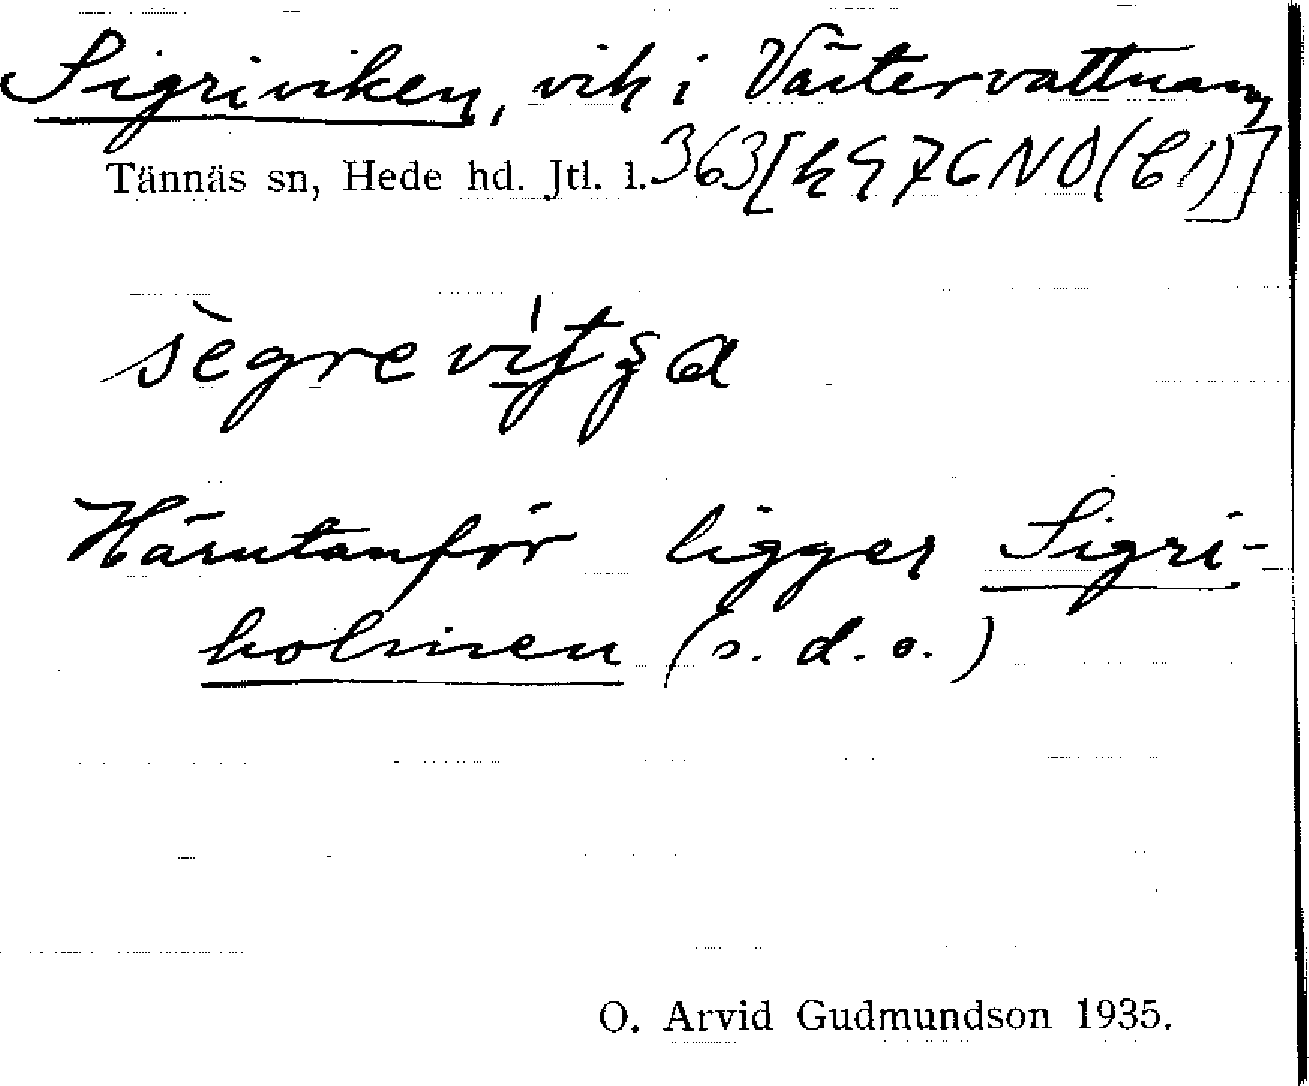 Sigriviken, vik i Västervattnan,
Tännäs sn, Hede hd. Jtl. l. 363
Härutanför ligger Sigri-
holmen (s. d. o.)
O. Arvid Gudmundson 1935.